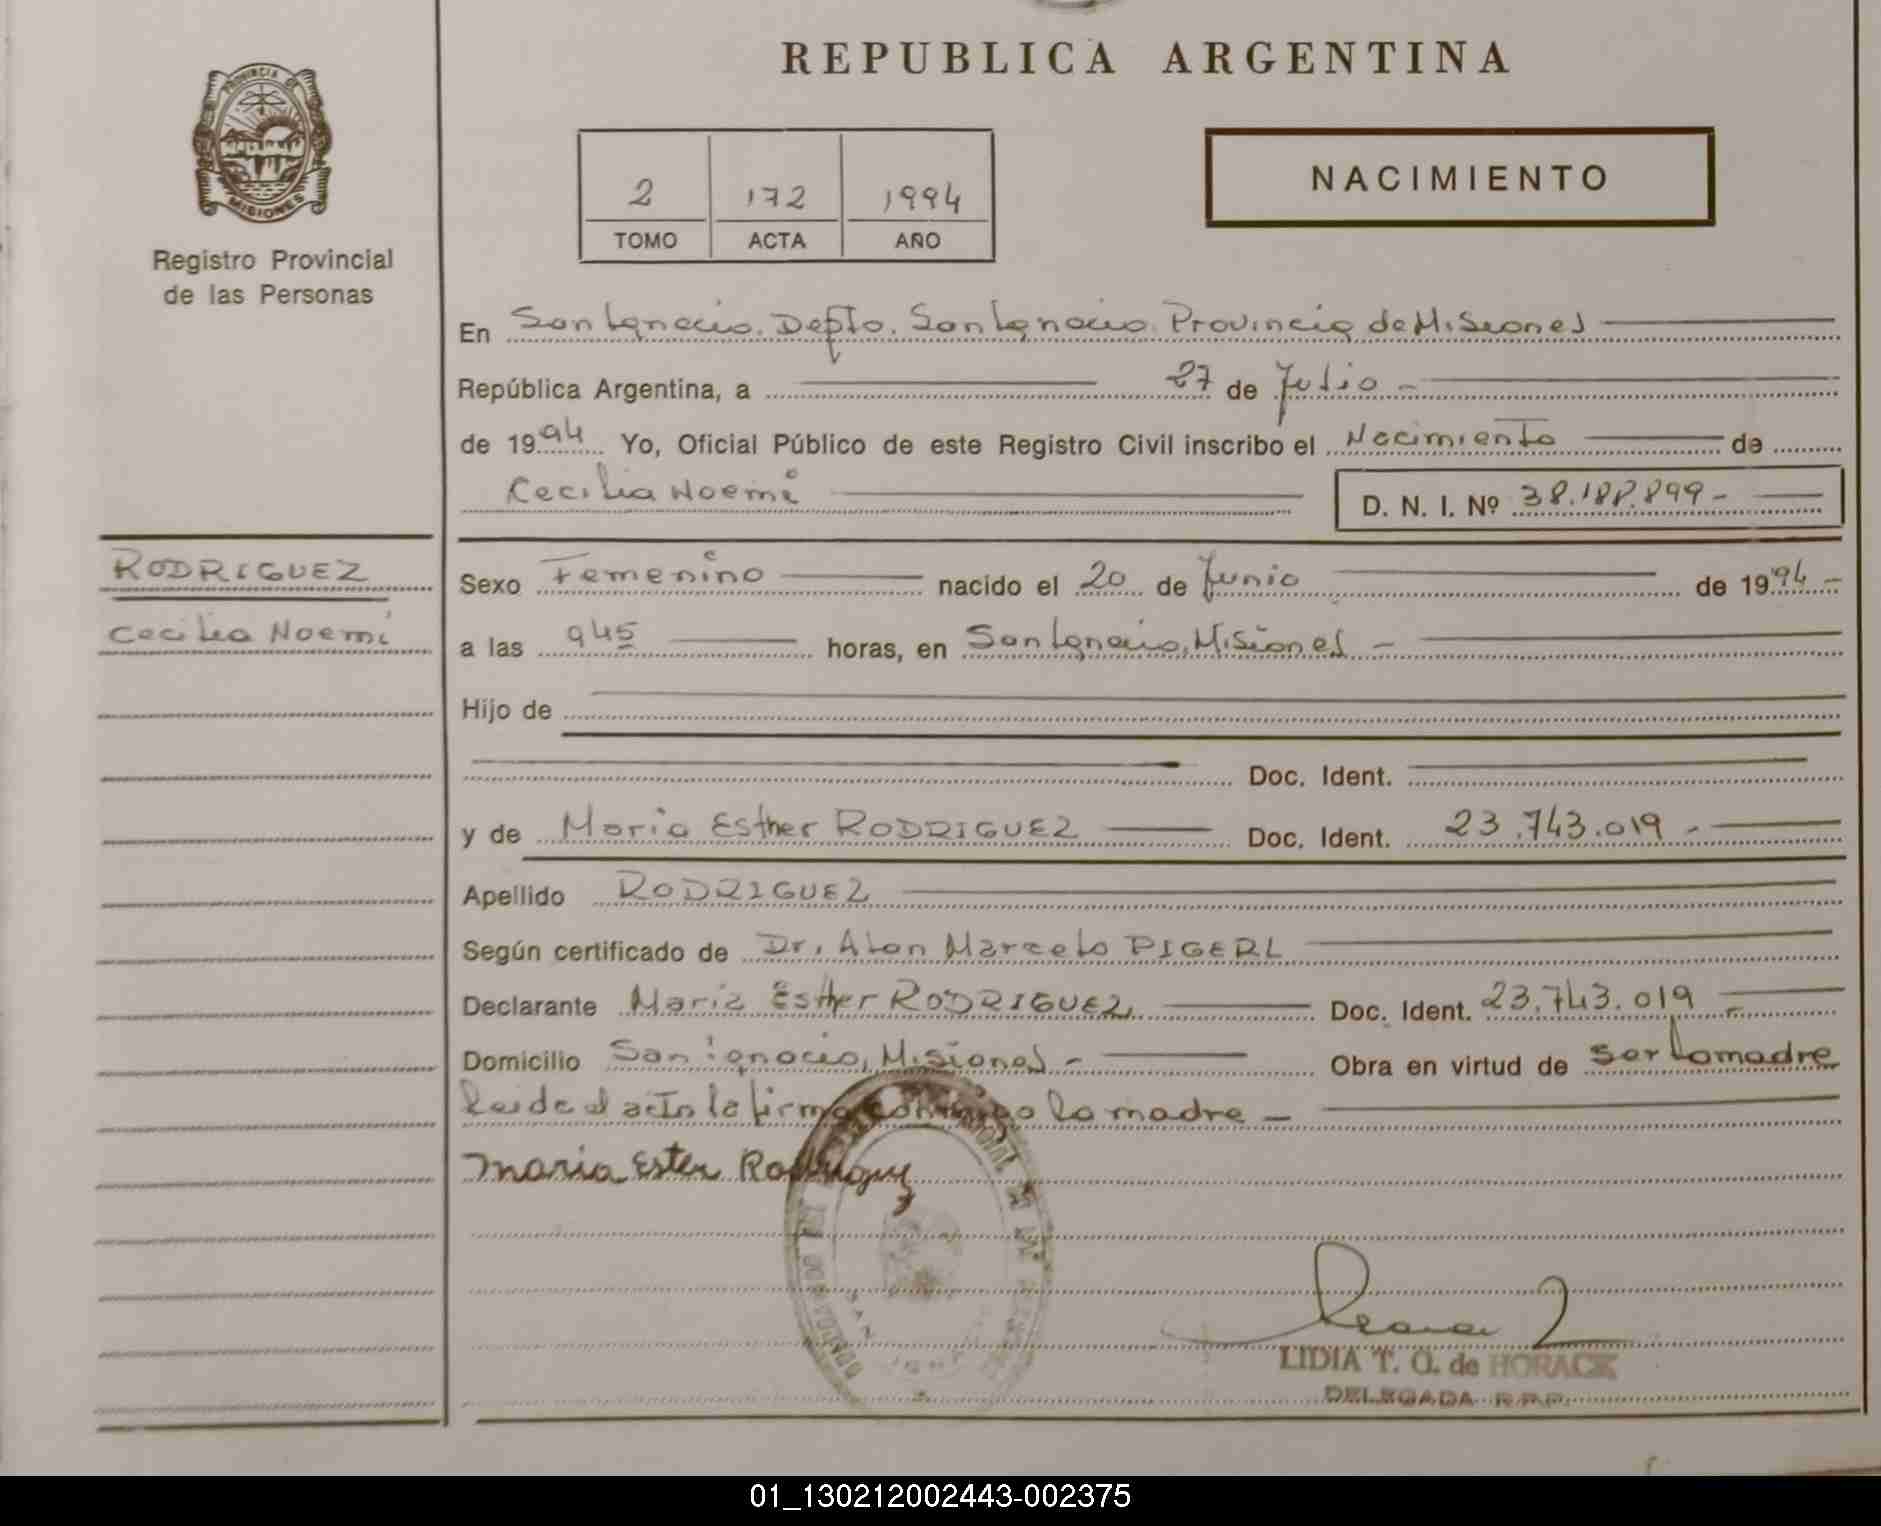 REPUBLICA ARGENTINA
PROVINCIA DE
MISIONES
Registro Provincial
de las Personas
2 172 1994
TOMO ACTA AÑO
NACIMIENTO
En San Ignacio. Depto. San Ignacio. Provincia de Misiones
República Argentina, a 27 de Julio -
de 1994 Yo, Oficial Público de este Registro Civil inscribo el Nacimiento de
Cecilia Noemí D. N. I. Nº 38.188.899-
RODRIGUEZ
Cecilia Noemí
Sexo Femenino nacido el 20 de Junio de 1994-
a las 945 horas, en San Ignacio, Misiones -
Hijo de
Doc. Ident.
y de Maria Esther RODRIGUEZ Doc. Ident. 23.743.019-
Apellido RODRIGUEZ
Según certificado de Dr. Alan Marcelo PIGERL
Declarante Maria Esther RODRIGUEZ Doc. Ident. 23.743.019-
Domicilio San Ignacio, Misiones - Obra en virtud de ser la madre
Leida el acta la firma conmigo la madre -
Maria Ester Rodriguez
LIDIA T. O. de HORACK
DELEGADA R.P.P.
01_130212002443-002375